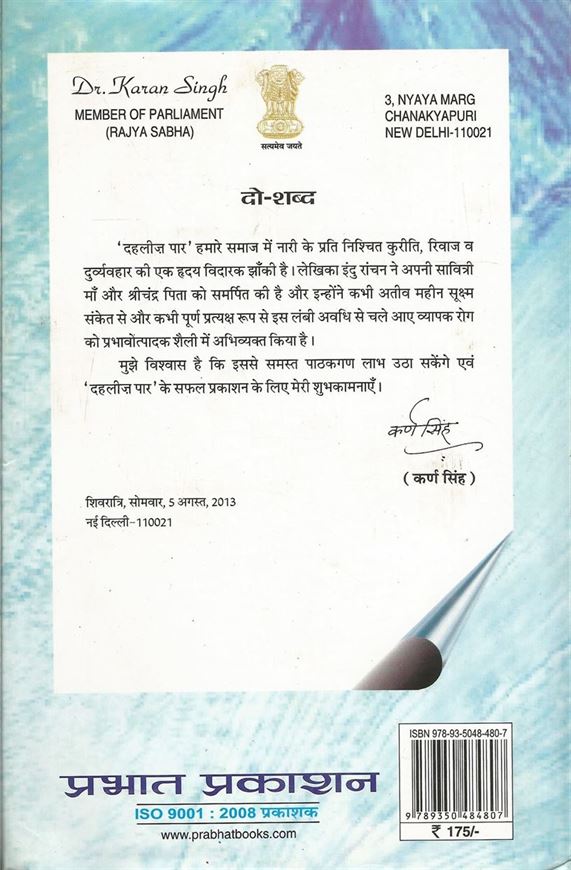 Dr. Karan Singh
MEMBER OF PARLIAMENT
(RAJYA SABHA)
सत्यमेव जयते
3, NYAYA MARG
CHANAKYAPURI
NEW DELHI-110021
दो-शब्द
‘दहलीज़ पार’ हमारे समाज में नारी के प्रति निश्चित कुरीति, रिवाज व
दुर्व्यवहार की एक हृदय विदारक झाँकी है। लेखिका इंदु रांचन ने अपनी सावित्री
माँ और श्रीचंद्र पिता को समर्पित की है और इन्होंने कभी अतीव महीन सूक्ष्म
संकेत से और कभी पूर्ण प्रत्यक्ष रूप से इस लंबी अवधि से चले आए व्यापक रोग
को प्रभावोंत्पादक शैली में अभिव्यक्त किया है।
मुझे विश्वास है कि इससे समस्त पाठकगण लाभ उठा सकेंगे एवं
‘दहलीज़ पार’ के सफल प्रकाशन के लिए मेरी शुभकामनाएँ।
कर्ण सिंह
( कर्ण सिंह )
शिवरात्रि, सोमवार, 5 अगस्त, 2013
नई दिल्ली-110021
प्रभात प्रकाशन
ISO 9001 : 2008 प्रकाशक
www.prabhatbooks.com
ISBN 978-93-5048-480-7
9 789350 484807
₹ 175/-